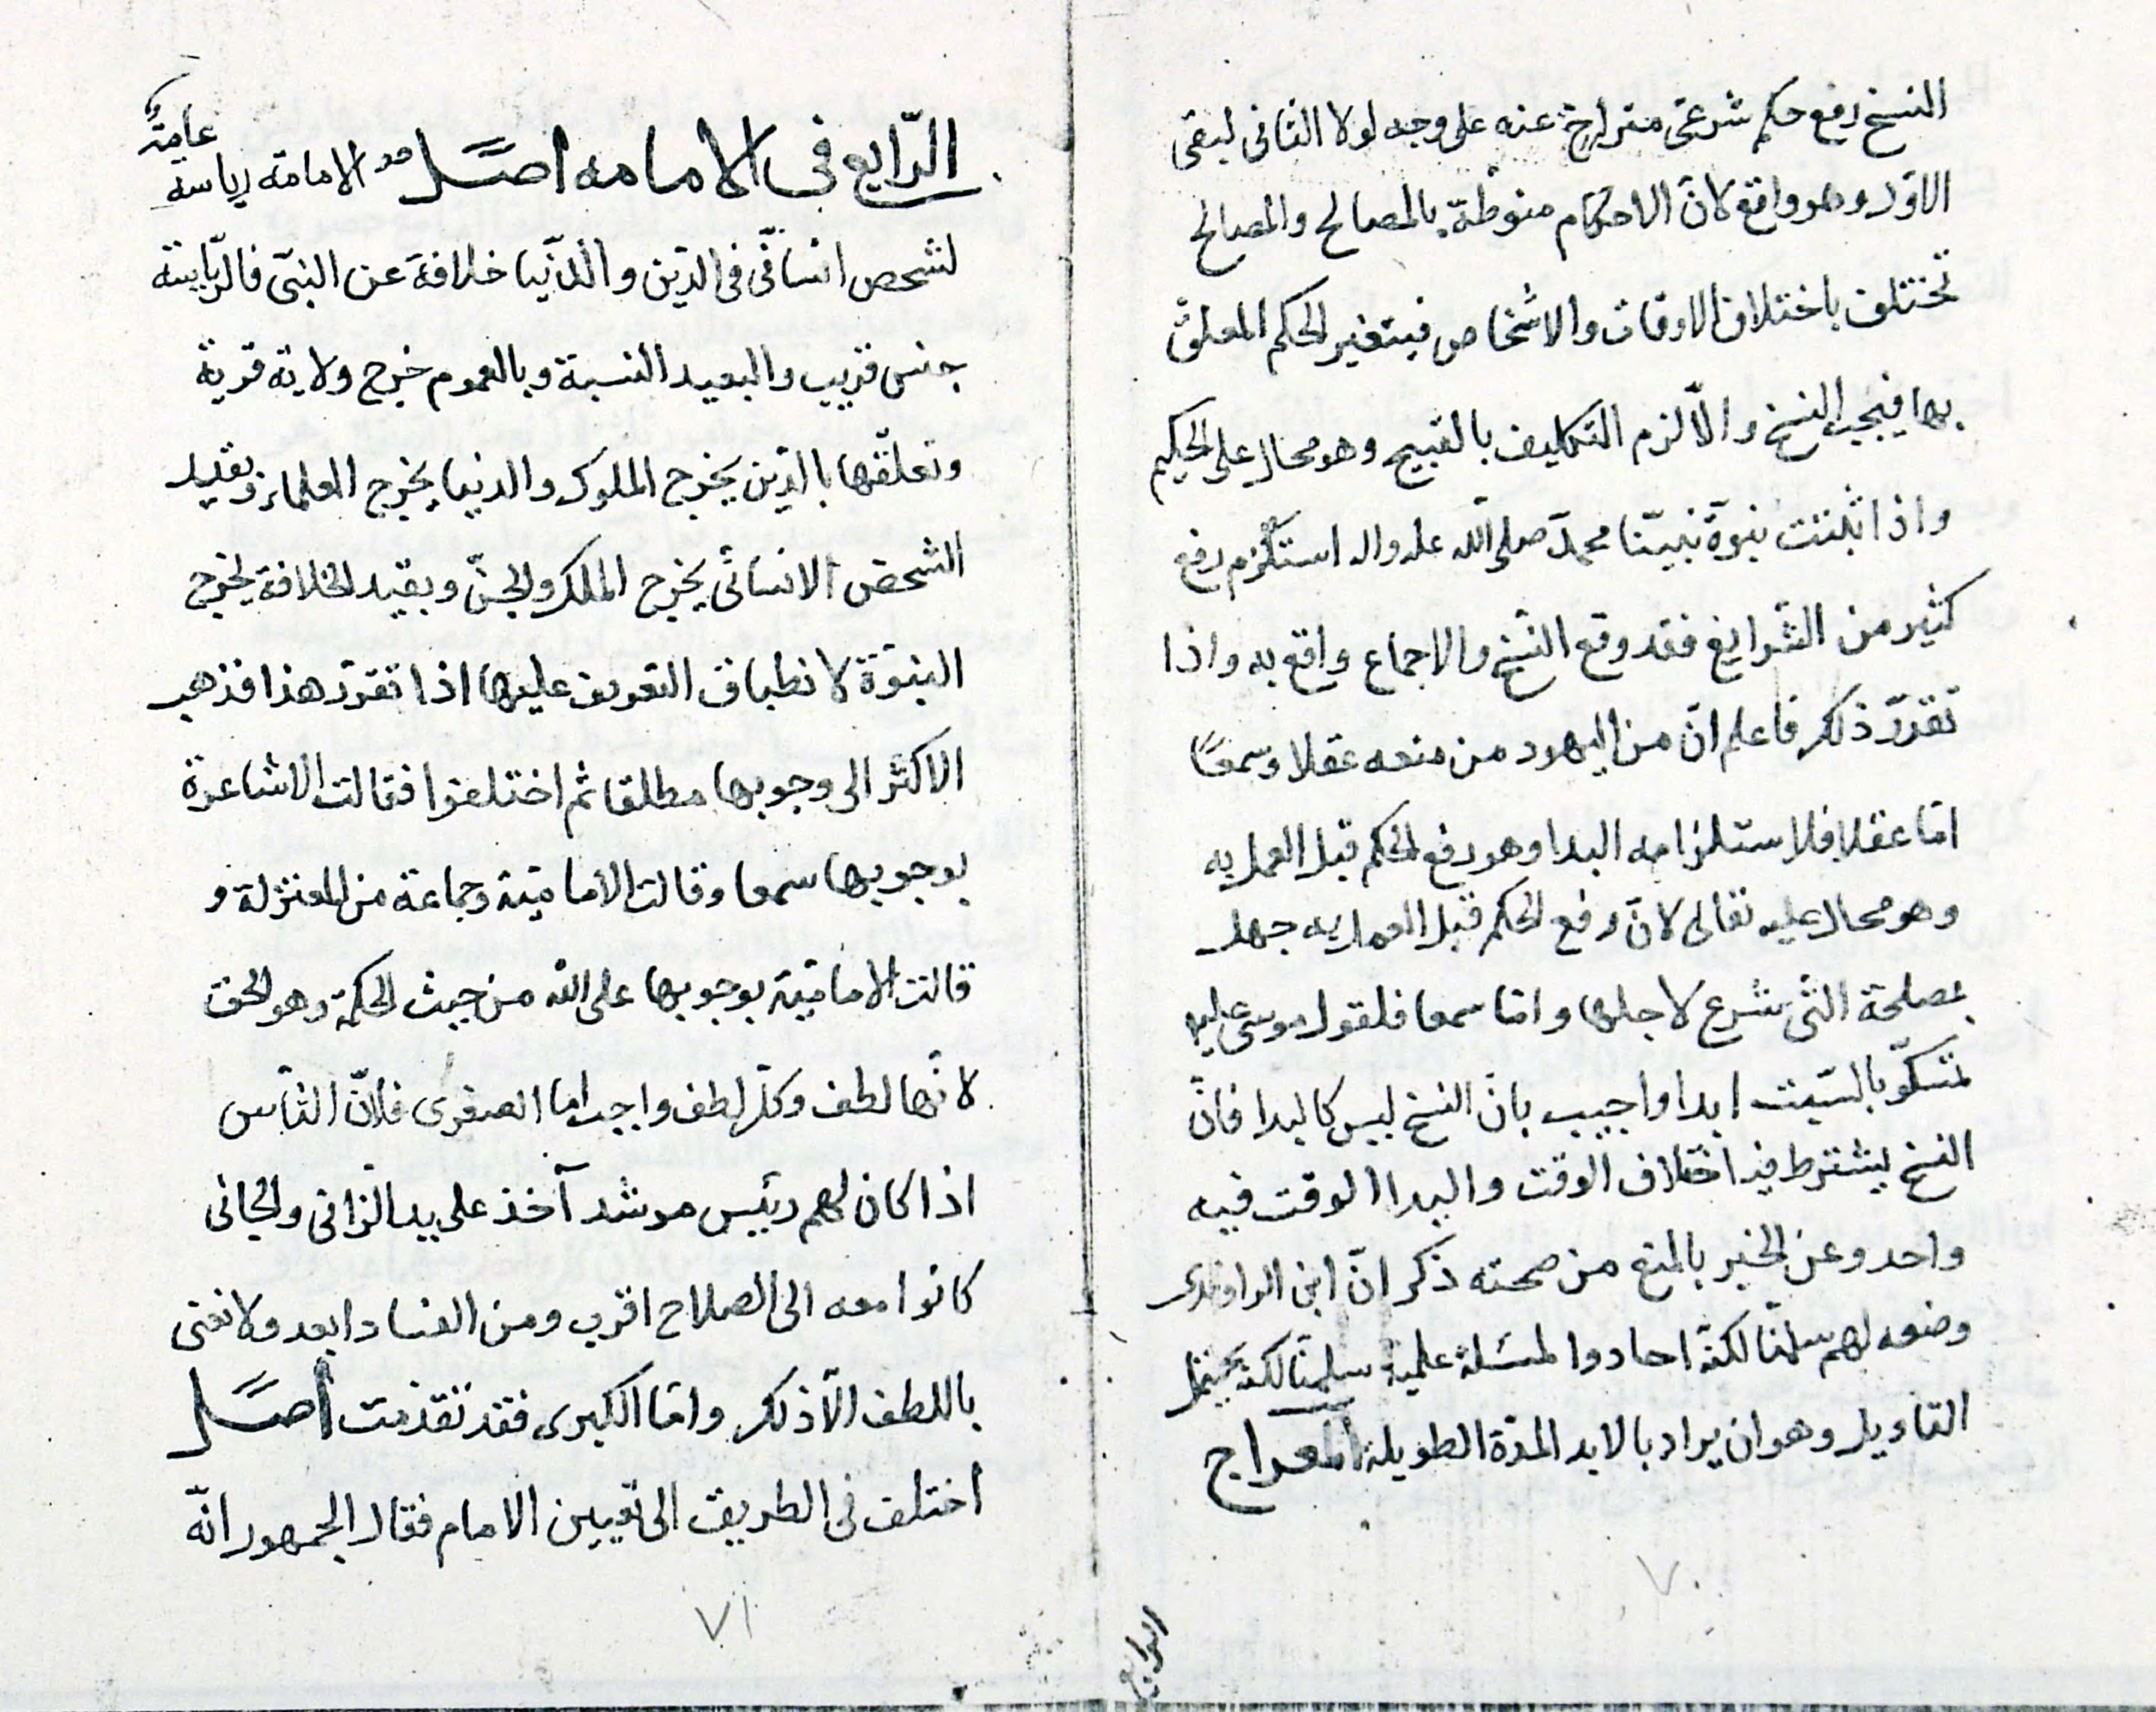 النسخ رفع حكم شرعى متراخ عنه على وجه لولا الثانى لبقى
الاوّل وهو واقع لانّ الاحكام منوطة بالمصالح والمصالح
تختلف باختلاف الاوقات والاشخاص فيتغير الحكم المعلق
بها فيجب النسخ والّا لزم التكليف بالقبيح وهو محال على الحكيم
واذا ثبتت نبوّة نبيّنا محمد صلى الله عليه واله استلزم رفع
كثير من الشرايع فقد وقع النسخ والاجماع واقع به واذا
تقرّر ذلك فاعلم انّ من اليهود من منعه عقلا وسمعًا
امّا عقلا فلاستلزامه البدا وهو رفع الحكم قبل العمل به
وهو محال عليه تعالى لانّ رفع الحكم قبل العمل به جهل
بمصلحة التى شرع لاجلها وامّا سمعا فلقول موسى عليه
تمسكّوا بالسّبت ابدا واجيب بانّ النسخ ليس كالبدا فانّ
النسخ يشترط فيه اختلاف الوقت والبدا الوقت فيه
واحد وعن الخبر بالمنع من صحته ذكر انّ ابن الراوندى
وضعه لهم سلمنا لكنّه احاد والمسئلة علمية سلمنا لكنه يحتمل
التاويل وهو ان يراد بالابد المدّة الطويلة المعراج
٧٠
الرابع
الرّابع فى الامامه اصل حد الامامة رياسة عامة
لشخص انسانّى فى الدّين والدّنيا خلافة عن النبىّ فالرّياسة
جنس قريب والبعيد النسبة وبالعموم خرج ولاية قرية
وتعلّقها بالدّين يخرج الملوك والدنيا يخرج العلماء وبقيد
الشخص الانسانّى يخرج الملك والجنّ وبقيد الخلافة يخرج
النبوّة لانطباق التعريف عليها اذا تقرّر هذا فذهب
الاكثر الى وجوبها مطلقا ثم اختلفوا فقالت الاشاعرة
بوجوبها سمعا وقالت الاماميّة وجماعة من المعتزلة و
قالت الاماميّة بوجوبها على الله من حيث الحكمة وهو الحق
لانّها لطف وكلّ لطف واجب اما الصغرى فلانّ النّاس
اذا كان لهم رئيس مرشد آخذ على يد الزانى والجانى
كانوا معه الى الصلاح اقرب ومن الفساد ابعد ولا نعنى
باللطف الّا ذلك وامّا الكبرى فقد تقدّمت اصل
اختلف فى الطريق الى تعيين الامام فقال الجمهور انّه
٧١